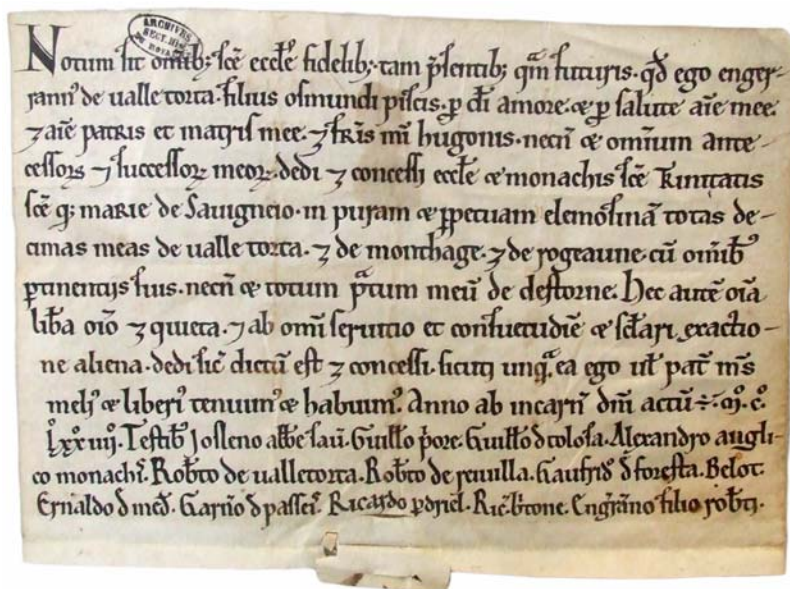 ARCHIVES
SECT. HIS
DU ROYAUME
Notum sit omĩb; scẽ ecclẽ fidelib;. tam p̃sentib; qᷓm futuris. qđ ego enger-
rann᾽ de ualle torta. filius osmundi piscis. ꝑ dĩ amore. ⁊ ꝑ salute aĩe mee.
⁊ aĩe patris et matris mee. ⁊ fr̃is mĩ hugonis. necñ ⁊ om̃ium ante-
cessoꝝ ⁊ successoꝝ meoꝝ. dedi ⁊ concessi eccłe ⁊ monachis scẽ Trinitatis
scẽ q; marie de Sauigneio. in puram ⁊ ꝑpetuam elemosinã totas de-
cimas meas de ualle torta. ⁊ de monthage. ⁊ de rogeaune. cũ om̃ib᾽
ꝑtinentijs suis. necñ ⁊ totum pᷓtum meũ de destorne. Hec autẽ oĩa
lib̃a oĩo ⁊ quieta. ⁊ ab omĩ seruitio et consuetudĩe ⁊ scłari exactio-
ne aliena. dedi sic̃ dictũ est ⁊ concessi. sicuti unqᷓ ea ego uł pat̃ m̃s
meli᾽ ⁊ liberi᾽ tenuim᾽ ⁊ habuim᾽. Anno ab incarñ dñi actũ ÷. Mͦ. Cͦ.
Lͦxxͦiiij. Testib᾽ Josleno abb̃e sauĩ. Guiłło p̃ore. Guiłło đ tolosa. Alexandro angli-
co monachĩ. Rob̃to de ualletorta. Rob̃to de reuilla. Gaufrid᾽ đ foresta. Belot.
Ernaldo đ med̃. Garño đ passeĩ. Ricardo ꝑdriel. Ric̃. b̃tone. Engr̃ano filio rob̃ti.